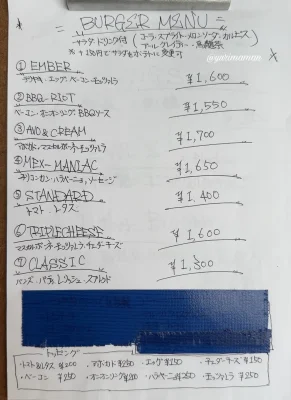 = BURGER MENU =
・サラダ・ドリンク付 (コーラ・スプライト・メロンソーダ・カルピス
ジンジャーエール・烏龍茶
※ +150円でサラダをポテトに変更可
① EMBER ¥1,600
テリヤキ・エッグ・ベーコン・モッツァレラ
② BBQ-RIOT ¥1,550
ベーコン・オニオンリング・BBQソース
③ AVO & CREAM ¥1,700
アボカド・マスカルポーネ・モッツァレラ
④ MEX-MANIAC ¥1,650
チリコンカン・ハラペーニョ・ソーセージ
⑤ STANDARD ¥1,400
トマト・レタス
⑥ TRIPLECHEESE ¥1,600
マスカルポーネ・モッツァレラ・チェダーチーズ
⑦ CLASSIC ¥1,300
バンズ・パティ・レリッシュ・スプレッド
トッピング
・トマト&レタス ¥200 ・アボカド ¥250 ・エッグ ¥150 ・チェダーチーズ ¥150
・ベーコン ¥250 ・オニオンリング ¥200 ・ハラペーニョ ¥200 ・モッツァレラ ¥250